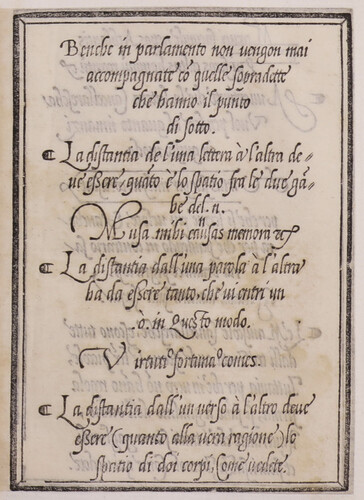 Benche in parlamento non vengon mai
accompagnate cõ quelle sopradette
che hanno il punto
di sotto.
La distantia de l'una lettera à l'altra de=
ve eßere, quãto è lo spatio fra le due gã=
be del. n.
Musa mihi causas memora &
La distantia dall'una parola à l'altra
ha da eßere tanto, che vi entri un
.o. in Questo modo.
Virtutiº fortunaº comes.
La distantia dall'un verso à l'altro deve
eßere (quanto alla vera ragione) lo
spatio di doi corpi, Come vedete.